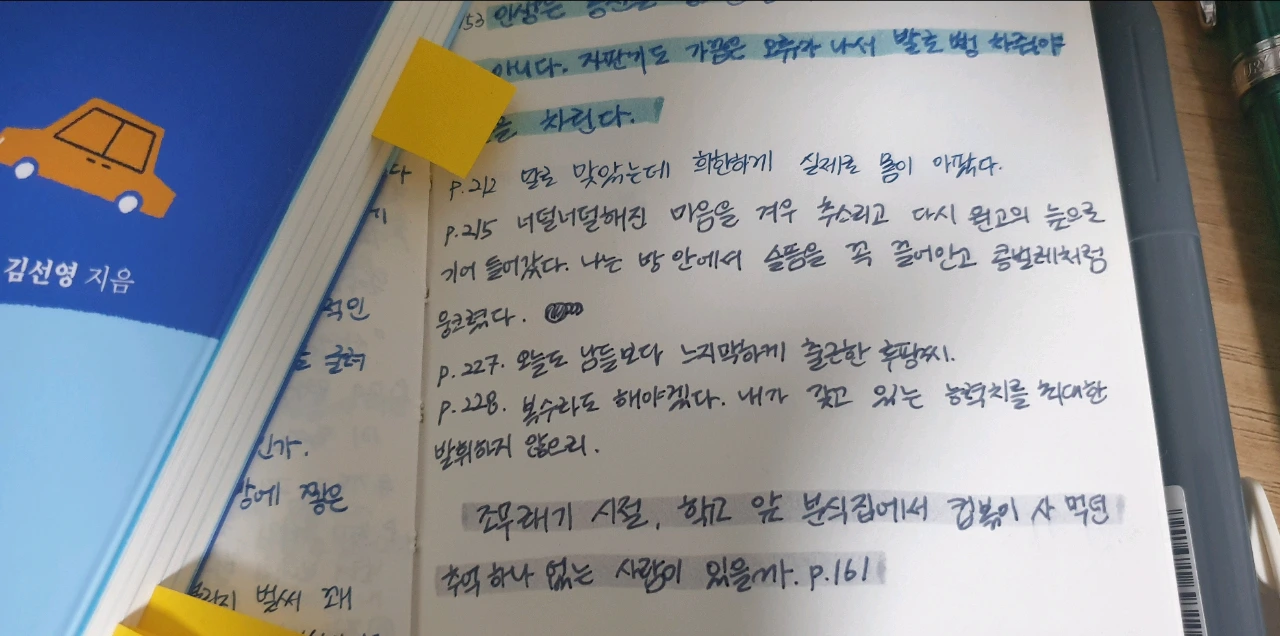 김선영 지음
53 인생은
아니다. 자판기도 가끔은 오류가 나서 발로 뻥 차줘야
차린다.
p.212 말로 맞았는데 희한하게 실제로 몸이 아팠다.
p.215 너덜너덜해진 마음을 겨우 추스리고 다시 원고의 늪으로
기어 들어갔다. 나는 방 안에서 슬픔을 꼭 끌어안고 콩벌레처럼
웅크렸다.
p.227. 오늘도 남들보다 느지막하게 출근한 후팡씨.
p.228. 복수라도 해야겠다. 내가 갖고 있는 능력치를 최대한
발휘하지 않으리.
조무래기 시절, 학교 앞 분식집에서 컵볶이 사 먹던
추억 하나 없는 사람이 있을까. p.161
적인
굴려
인가.
짱은
벌써 꽤